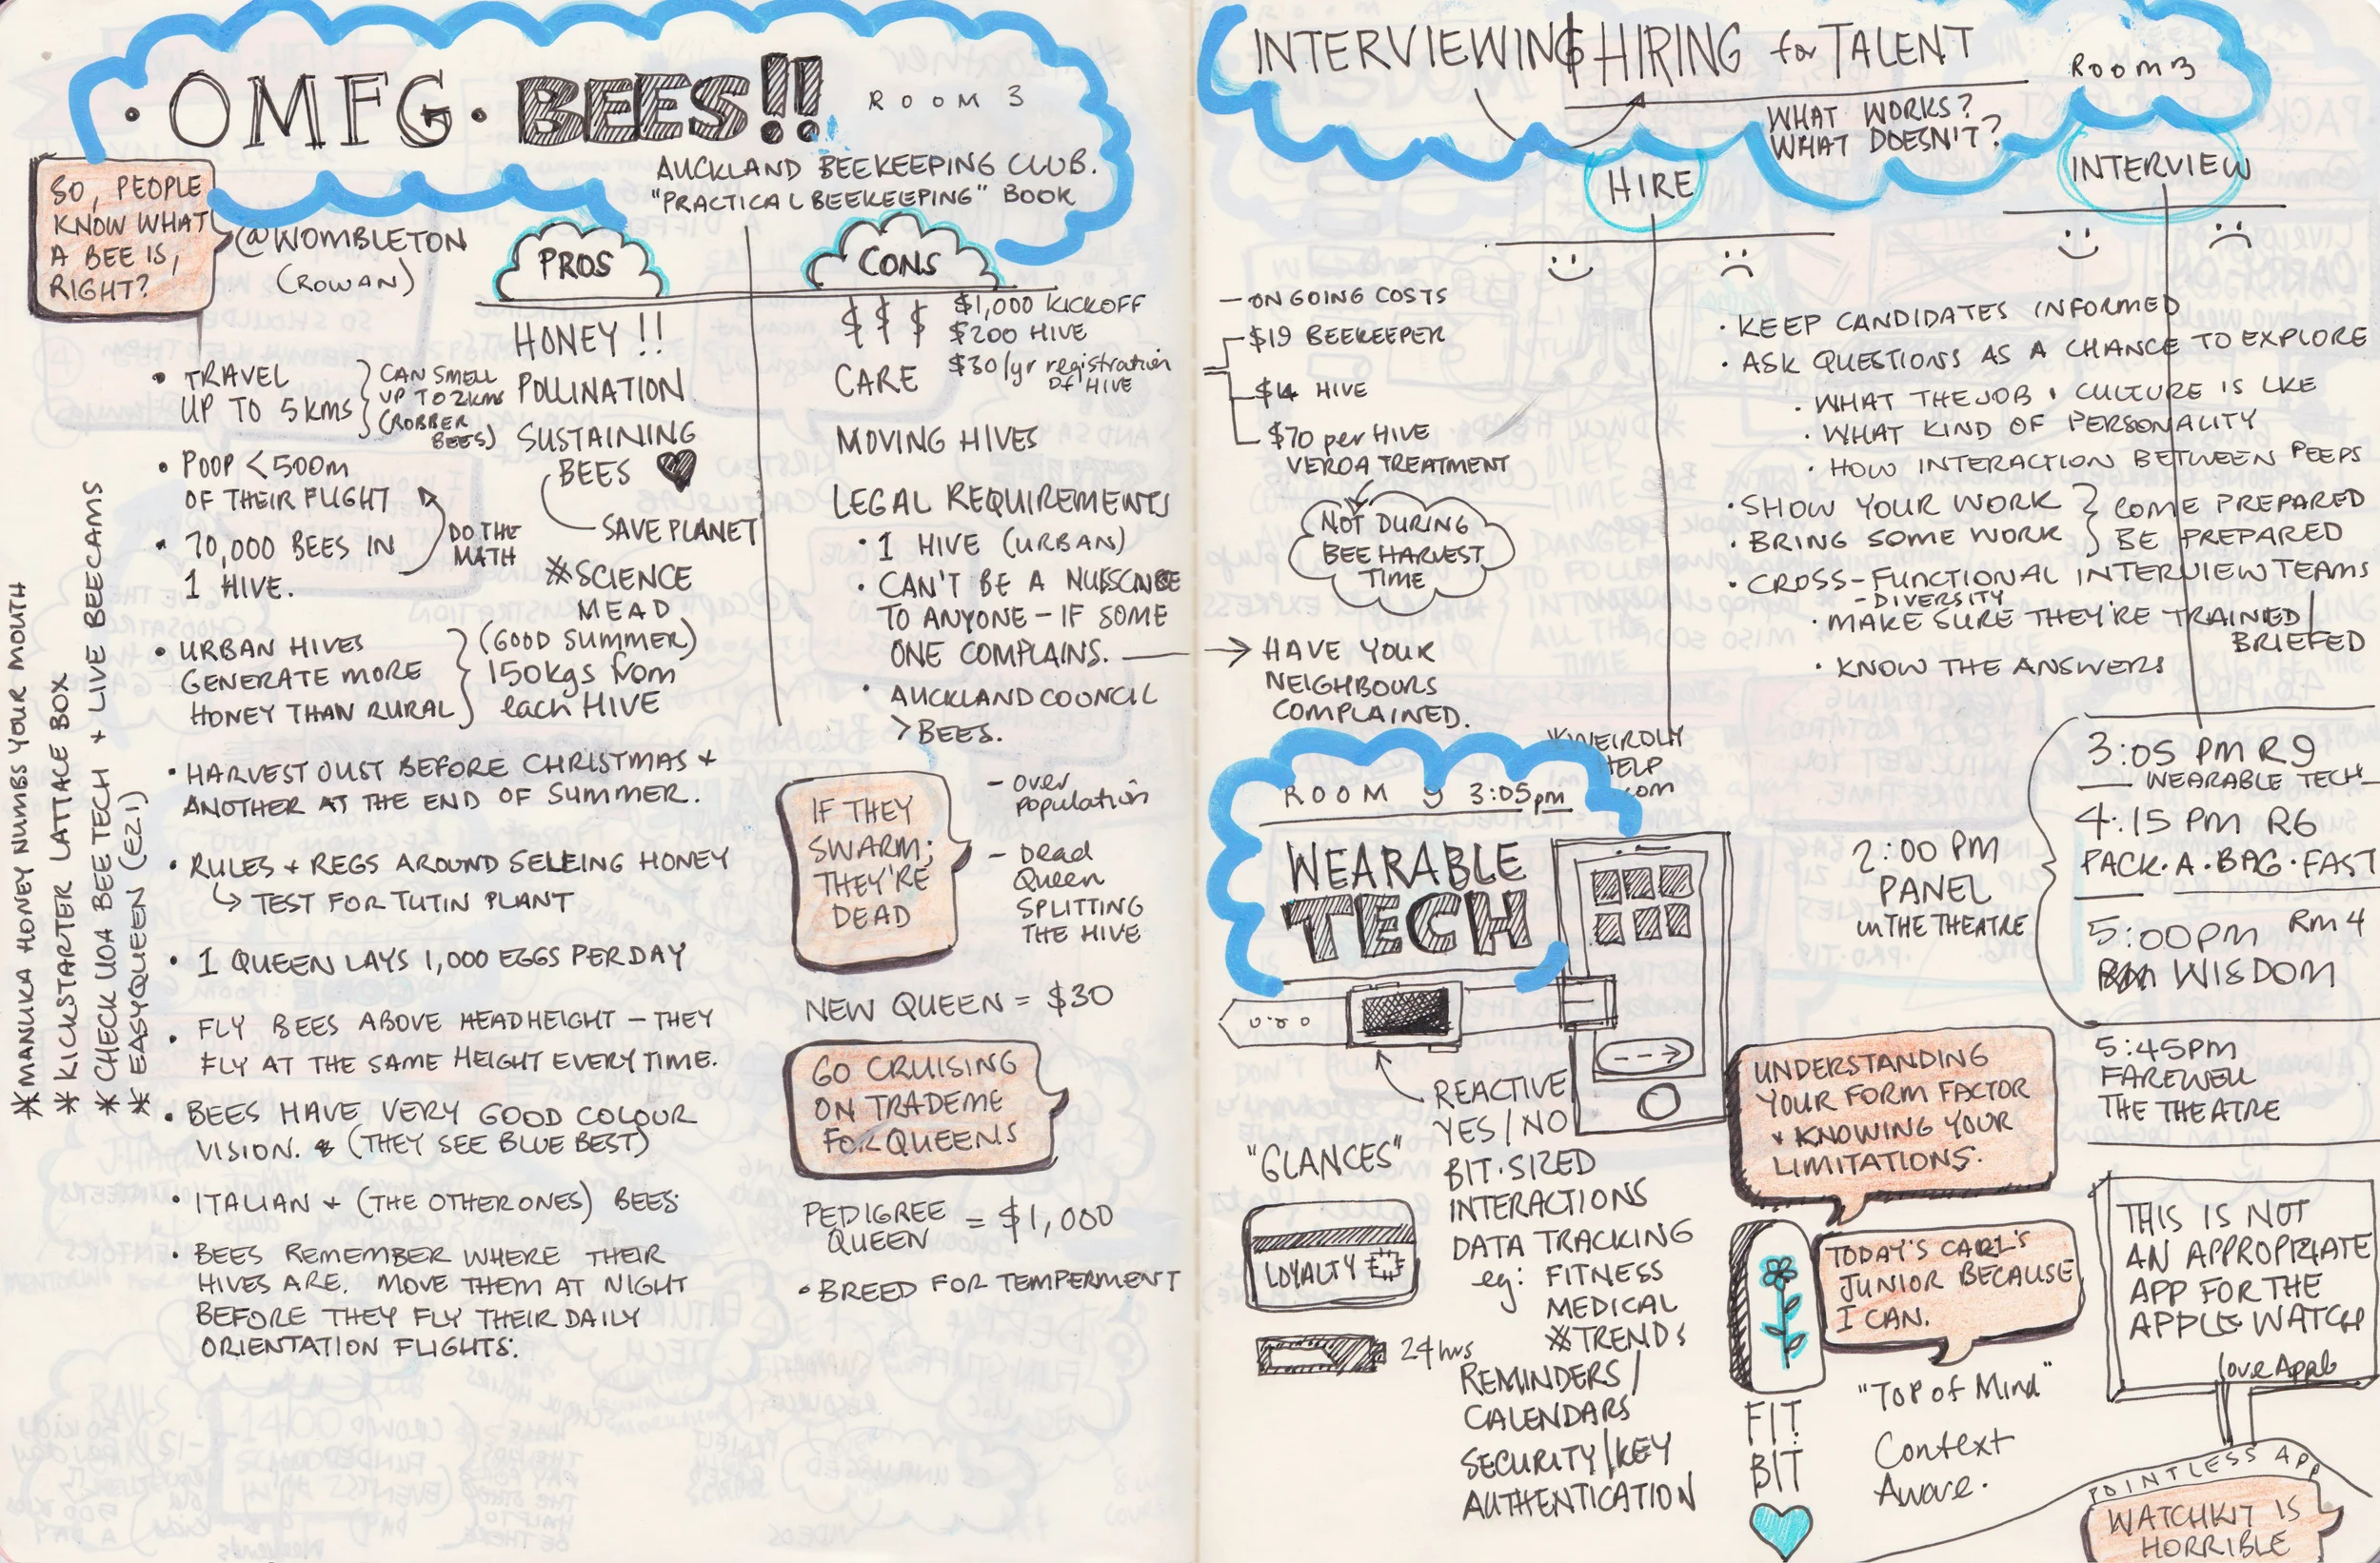 · OMFG · BEES!!
ROOM 3
AUCKLAND BEEKEEPING CLUB.
"PRACTICAL BEEKEEPING" BOOK
SO, PEOPLE
KNOW WHAT
A BEE IS,
RIGHT?
@WOMBLETON
(ROWAN)
• TRAVEL
UP TO 5KMS
CAN SMELL
UP TO 2KMS
(ROBBER
BEES)
• POOP <500m
OF THEIR FLIGHT
• 70,000 BEES IN
1 HIVE.
DO THE
MATH
• URBAN HIVES
GENERATE MORE
HONEY THAN RURAL
(GOOD SUMMER)
150kgs from
each HIVE
• HARVEST JUST BEFORE CHRISTMAS +
ANOTHER AT THE END OF SUMMER.
• RULES + REGS AROUND SELLING HONEY
↳ TEST FOR TUTIN PLANT
• 1 QUEEN LAYS 1,000 EGGS PER DAY
• FLY BEES ABOVE HEAD HEIGHT – THEY
FLY AT THE SAME HEIGHT EVERY TIME.
• BEES HAVE VERY GOOD COLOUR
VISION. & (THEY SEE BLUE BEST)
• ITALIAN + (THE OTHER ONES) BEES
• BEES REMEMBER WHERE THEIR
HIVES ARE. MOVE THEM AT NIGHT
BEFORE THEY FLY THEIR DAILY
ORIENTATION FLIGHTS.
* MANUKA HONEY NUMBS YOUR MOUTH
* KICKSTARTER LATTACE BOX
* CHECK UOA BEE TECH + LIVE BEECAMS
* EASYQUEEN (EZ.1)
PROS
HONEY !!
POLLINATION
SUSTAINING
BEES ♥
SAVE PLANET
*SCIENCE
MEAD
CONS
$ $ $
$1,000 KICKOFF
$200 HIVE
$30/yr registration
of HIVE
CARE
MOVING HIVES
LEGAL REQUIREMENTS
• 1 HIVE (URBAN)
• CAN'T BE A NUSCANCE
TO ANYONE – IF SOME
ONE COMPLAINS.
• AUCKLAND COUNCIL
> BEES.
IF THEY
SWARM;
THEY'RE
DEAD
– over
population
– Dead
Queen
SPLITTING
THE HIVE
NEW QUEEN = $30
GO CRUISING
ON TRADEME
FOR QUEENS
PEDIGREE
QUEEN = $1,000
• BREED FOR TEMPERMENT
INTERVIEWING & HIRING for TALENT
ROOM 3
WHAT WORKS?
WHAT DOESN'T?
– ONGOING COSTS
$19 BEEKEEPER
$14 HIVE
$70 per HIVE
VEROA TREATMENT
NOT DURING
BEE HARVEST
TIME
→ HAVE YOUR
NEIGHBOURS
COMPLAINED.
HIRE
INTERVIEW
• KEEP CANDIDATES INFORMED
• ASK QUESTIONS AS A CHANCE TO EXPLORE
• WHAT THE JOB & CULTURE IS LKE
• WHAT KIND OF PERSONALITY
• HOW INTERACTION BETWEEN PEEPS
• SHOW YOUR WORK
• BRING SOME WORK
COME PREPARED
BE PREPARED
• CROSS-FUNCTIONAL INTERVIEW TEAMS
– DIVERSITY
• MAKE SURE THEY'RE TRAINED/
BRIEFED
• KNOW THE ANSWERS
*WEIRDLY
HELP
.com
3:05 PM R9
WEARABLE TECH
4:15 PM R6
PACK·A·BAG·FAST
5:00PM RM 4
WISDOM
2:00 PM
PANEL
in THE THEATRE
5:45PM
FAREWELL
THE THEATRE
ROOM 9 3:05pm
WEARABLE
TECH
REACTIVE
YES/NO
BIT·SIZED
INTERACTIONS
DATA TRACKING
eg: FITNESS
MEDICAL
*TRENDS
REMINDERS/
CALENDARS
SECURITY/KEY
AUTHENTICATION
"GLANCES"
LOYALTY
24hrs
UNDERSTANDING
YOUR FORM FACTOR
+ KNOWING YOUR
LIMITATIONS.
TODAY'S CARL'S
JUNIOR BECAUSE
I CAN.
FIT
BIT
"TOP of MIND"
Context
Aware.
THIS IS NOT
AN APPROPRIATE
APP FOR THE
APPLE WATCH
love Apple
POINTLESS APP
WATCHKIT IS
HORRIBLE